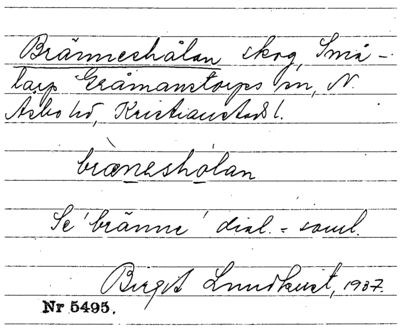 Bränneshålan skog, Små-
larp Gråmanstorps sn, N.
Åsbo hd, Kristianstads l.
brænəshólan
Se 'bränne' dial.-saml.
Birgit Lundkvist, 1937.
Nr 5495.